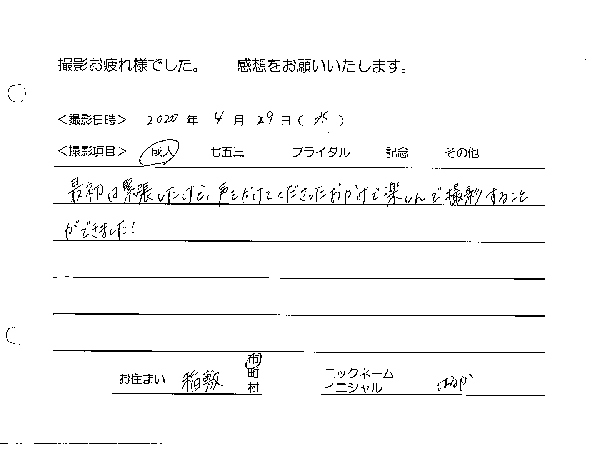 撮影お疲れ様でした。 感想をお願いいたします。
<撮影日時> 2020 年 4 月 29 日( 水 )
<撮影項目> 成人 七五三 ブライダル 記念 その他
最初は緊張したけど、声をかけてくださったおかげで楽しんで撮影すること
ができました!
お住まい 稲敷 市 町 村 ニックネーム イニシャル はるか